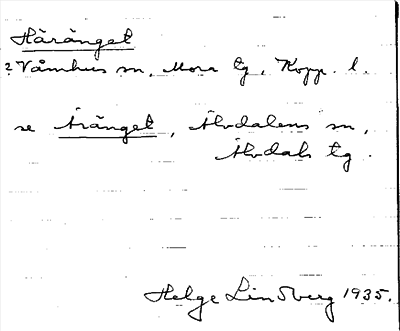 Häränget
? Våmhus sn, Mora tg, Kopp. l.
se Äränget, Älvdalens sn,
Älvdals tg.
Helge Lindberg 1935.